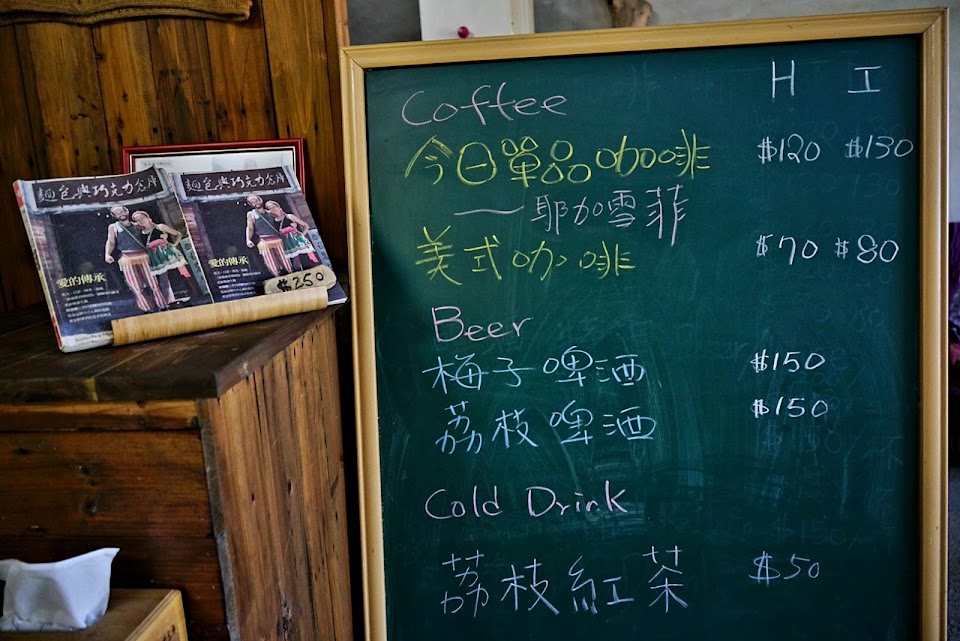 麵包與巧克力倉庫
愛的傳承
麵包與巧克力倉庫
愛的傳承
$250
H I
Coffee
今日單品咖啡 $120 $130
—耶加雪菲
美式咖啡 $70 $80
Beer
梅子啤酒 $150
荔枝啤酒 $150
Cold Drink
荔枝紅茶 $50